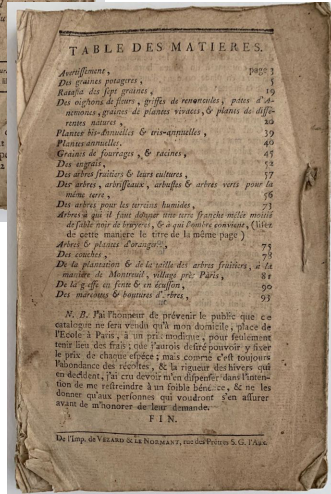 TABLE DES MATIERES.
Avertissement, page 3
Des graines potageres, 5
Ratafia des sept graines, 19
Des oighons de fleurs, griffes de renoncules, pates d'A-
nemones, graines de plantes vivaces, & plants de diffe-
rentes natures, 20
Plantes bis-annuelles & tris-annuelles, 39
Plantes annuelles. 40
Graines de fourrages, & racines, 45
Des engrais, 52
Des arbres fruitiers & leurs cultures, 57
Des arbres, arbrisseaux, arbustes & arbres verts pour la
même terre, 56
Des arbres pour les terreins humides, 73
Arbres à qui il faut donner une terre franche mêlée moitié
de sable noir de bruyeres, & à qui l'ombre convient, (lisez
de cette maniere le titre de la même page)
Arbres & plantes d'orangerie, 75
Des couches, 78
De la plantation & de la taille des arbres fruitiers, à la
maniere de Montreuil, village près Paris, 81
De la greffe en fente & en écusson, 90
Des marcottes & boutures d'arbres, 93
N. B. J'ai l'honneur de prévenir le public que ce
catalogue ne sera vendu qu'à mon domicile, place de
l'Ecole à Paris, à un prix modique, pour seulement
tenir lieu des frais; que j'aurois desiré pouvoir y fixer
le prix de chaque espéce; mais comme c'est toujours
l'abondance des récoltes, & la rigueur des hivers qui
en decident, j'ai cru devoir m'en dispenser dans l'inten-
tion de me restreindre à un foible bénéfice, & ne les
donner qu'aux personnes qui voudront s'en assurer
avant de m'honorer de leur demande.
FIN.
De l'Imp. de VEZARD & LE NORMANT, rue des Prêtres S. G. l'Aux.